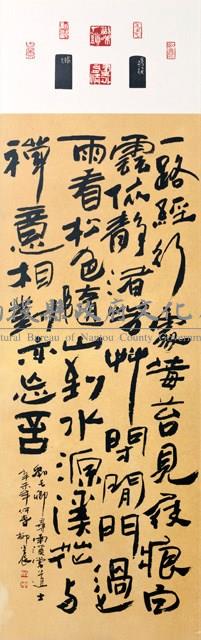 一路經行處莓苔見履痕白
雲依靜渚芳艸閉閒門過
雨看松色隨山到水源溪花与
禪意相對亦忘言
劉長卿尋南溪常道士
辛未年仲春
投縣政府文化
tural Bureau of Nantou County Governm